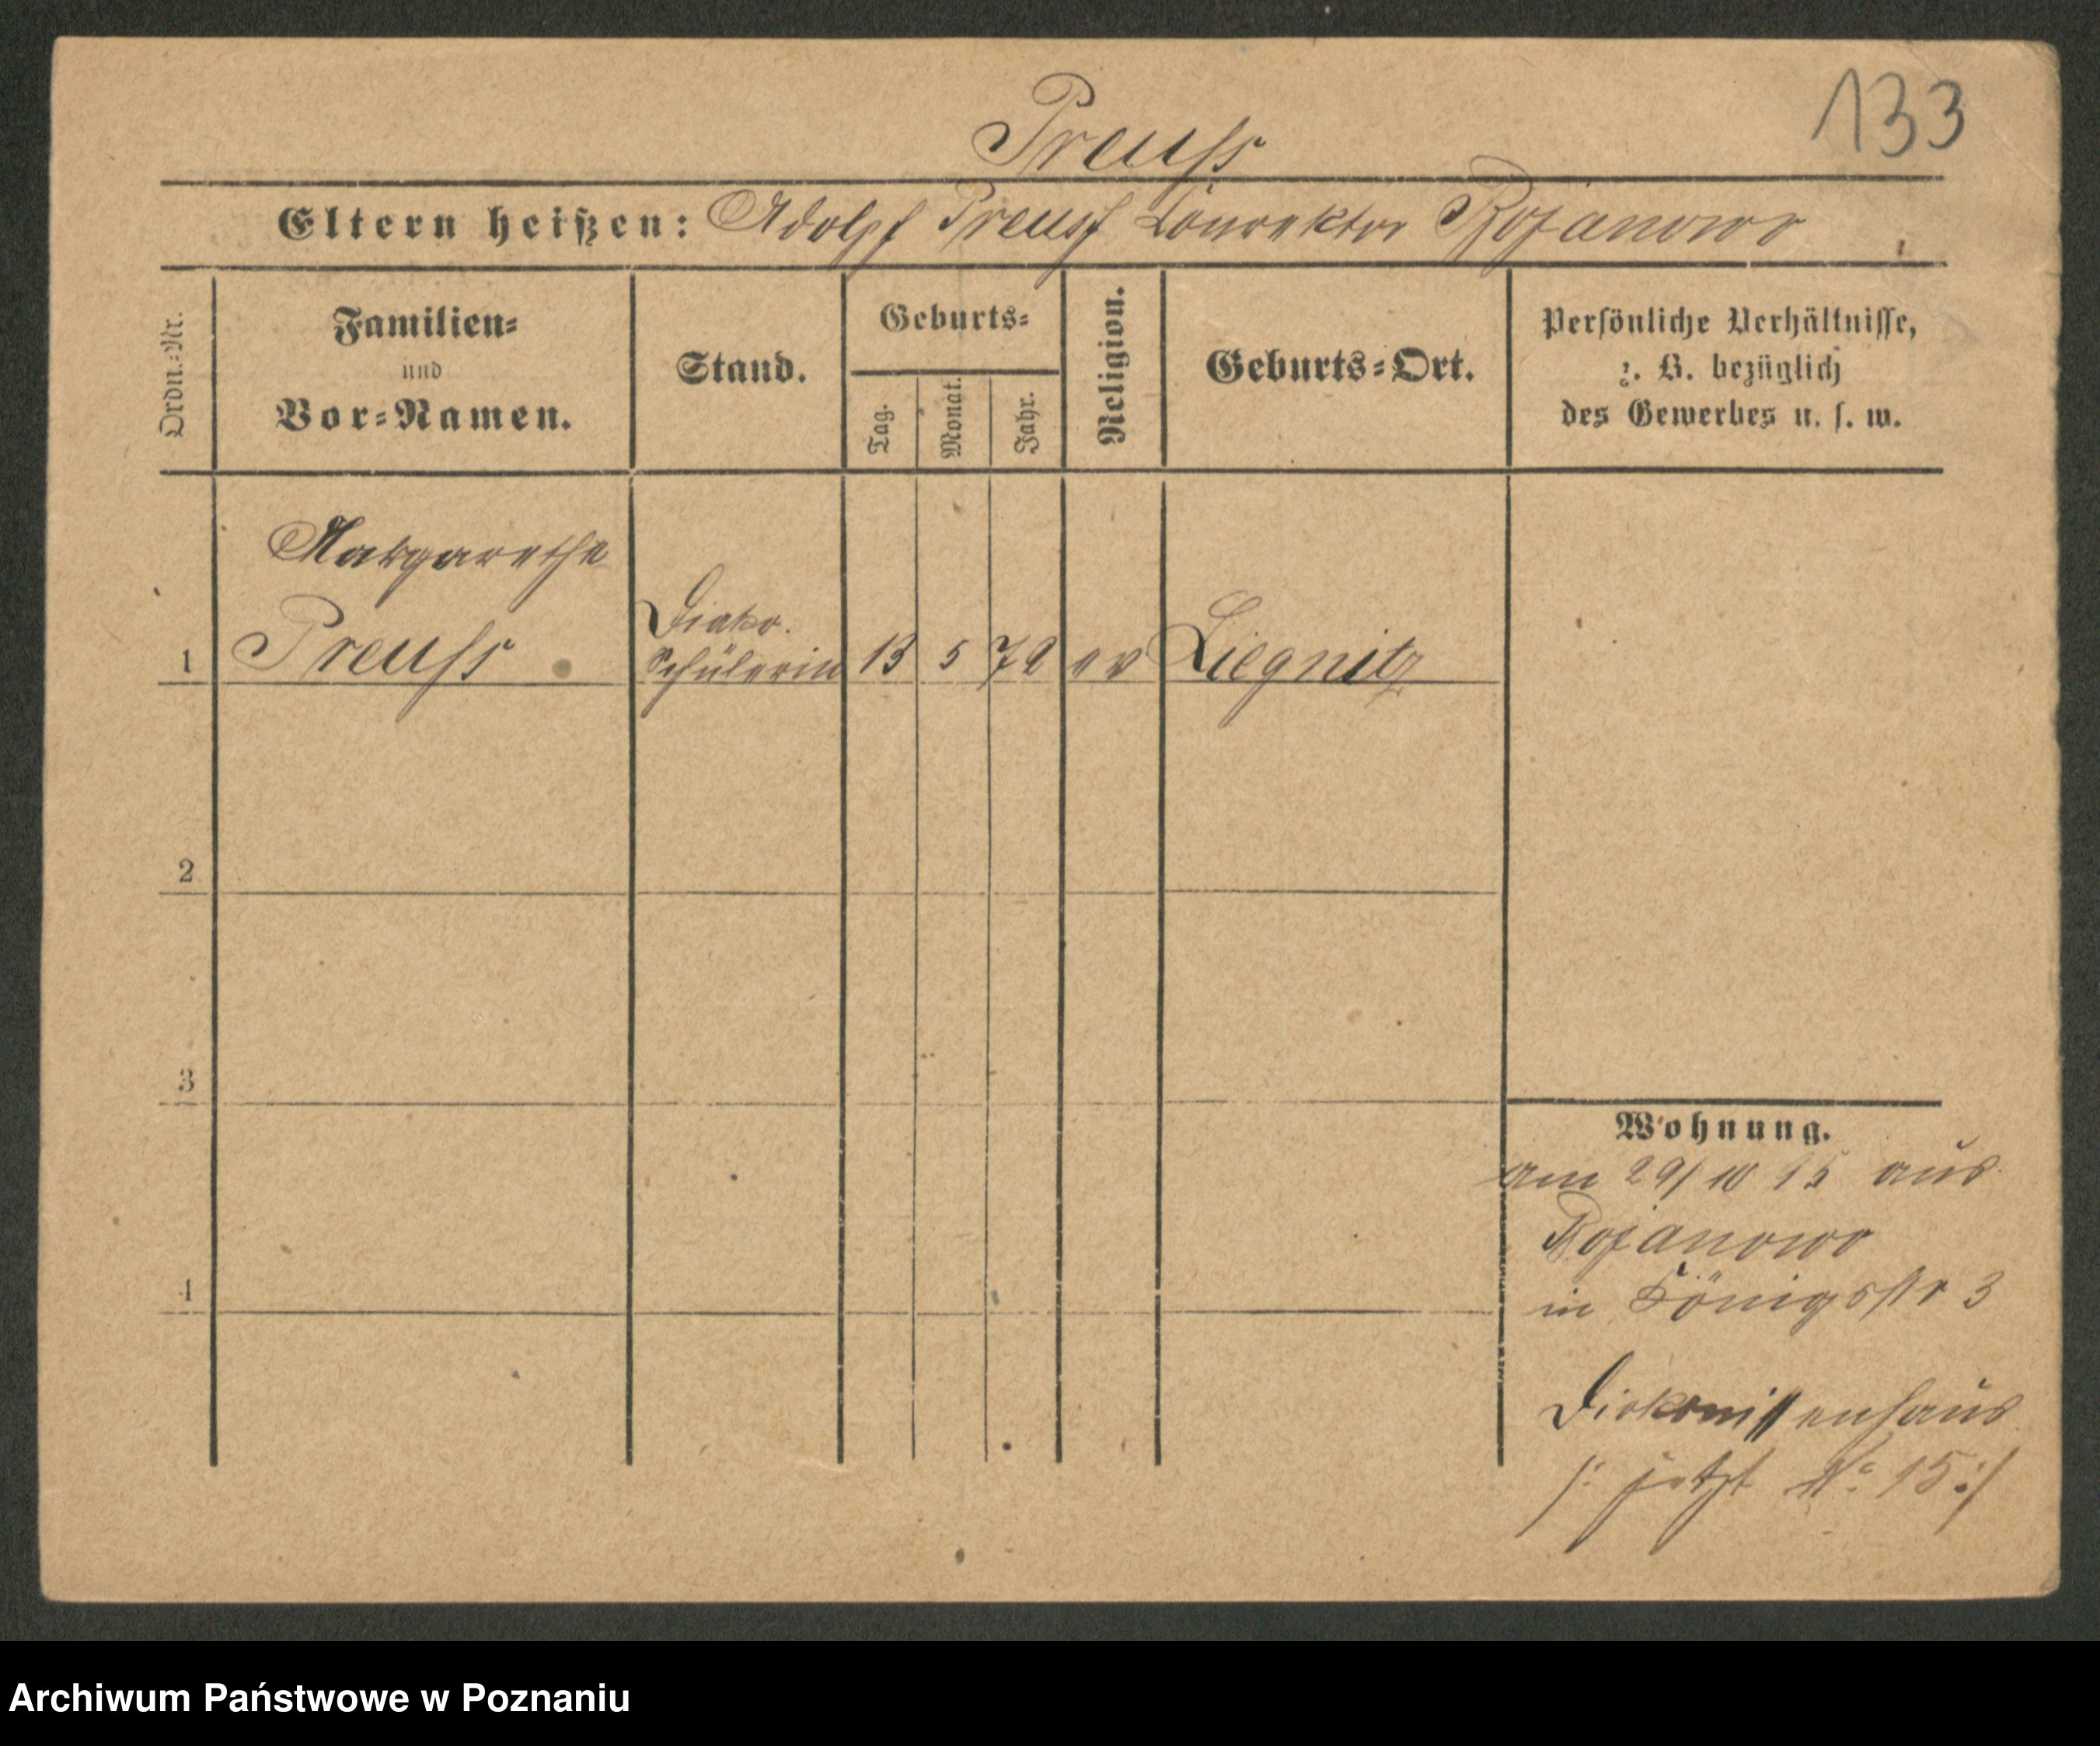 133
Preuss
Eltern heißen: Adolf Preuss Conrektor Bojanowo
Ordn.=Nr.
Familien=
und
Vor=Namen.
Stand.
Geburts=
Tag.
Monat.
Jahr.
Religion.
Geburts=Ort.
Persönliche Verhältnisse,
z. B. bezüglich
des Gewerbes u. s. w.
Margarethe
1 Preuss
Diako.
Schülerin 13 5 72 ev Liegnitz
2
3
4
Wohnung.
am 29/10 95 aus
Bojanowo
in Königsstr 3
Diakonissenhaus
/: jetzt No. 15 :/
Archiwum Państwowe w Poznaniu